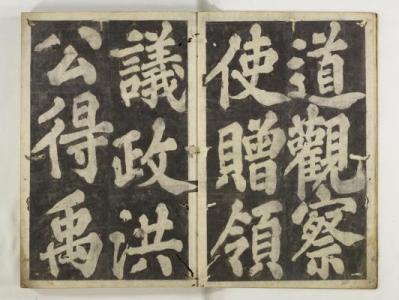 道觀察
使贈領
議政洪
公得禹